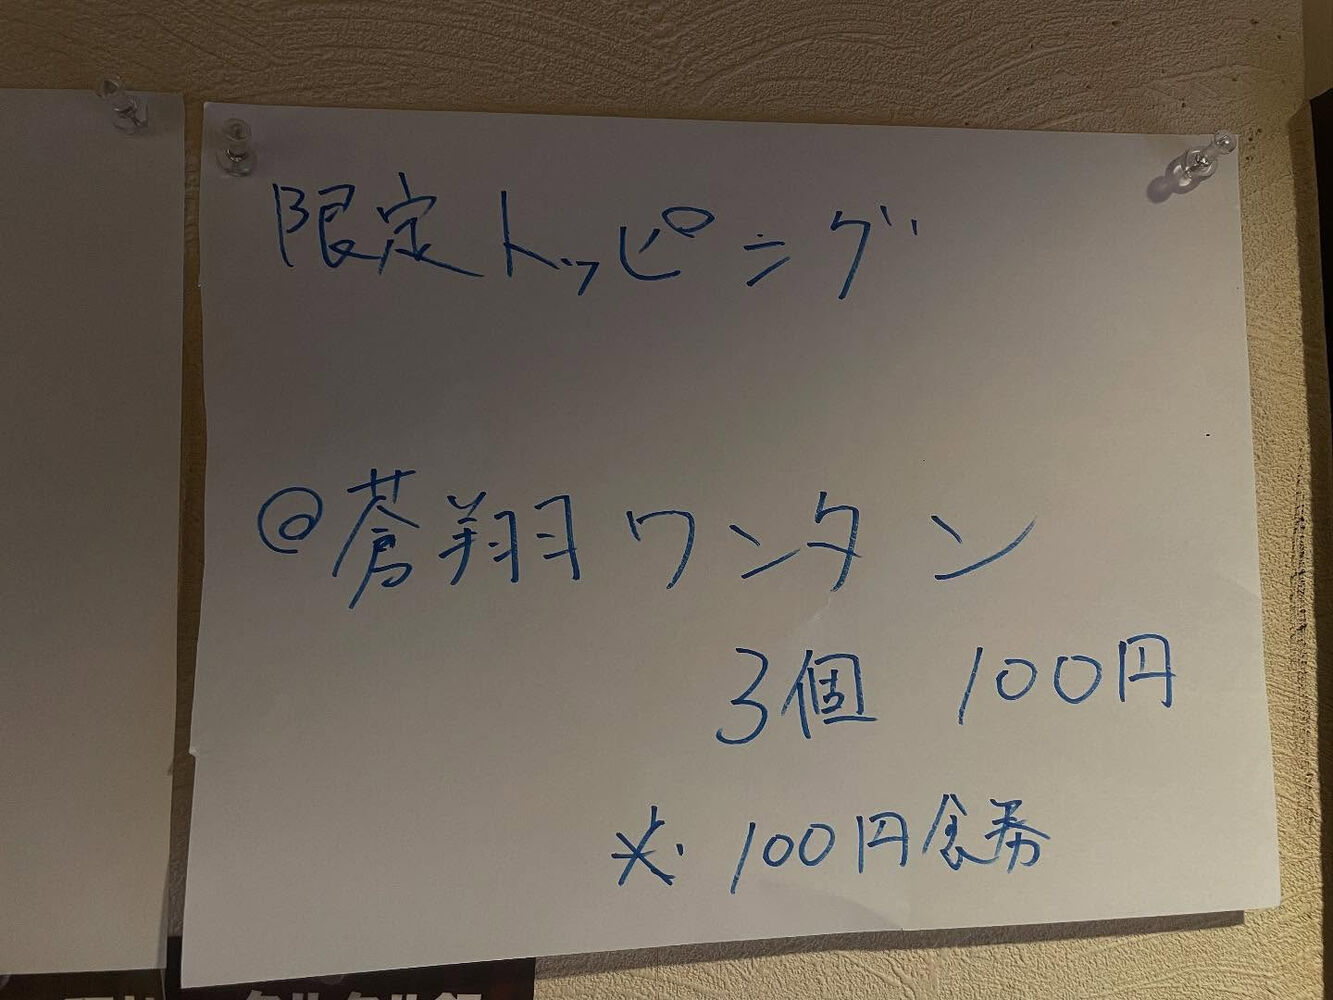 限定トッピング
@蒼翔ワンタン
3個 100円
※ 100円食券